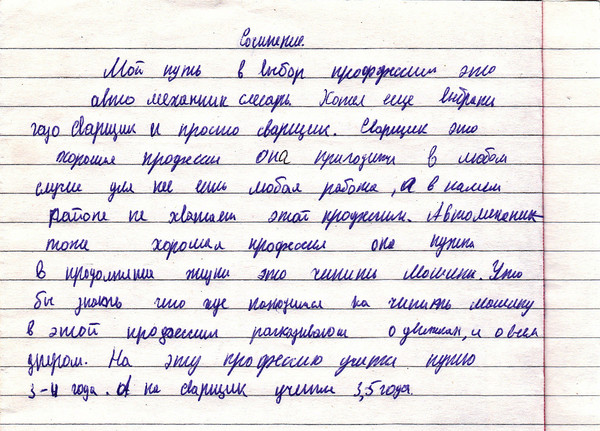 Сочинение.
Мой путь в выбор профджессии это
авто механник слесарь Хотел еще выбрать
газо Сварщик и просто сварщик. Сварщик это
хорошая продфессии она пригодится в любом
случие для нее есть любая работа, а в нашем
районе не хватает этой профджессии. Автомеханик
тоже хорошая профессия она нужна
в продолжение жизни это чинить Машины. Што
бы знать что где на чинить машину
в этой продфессии расказывают о движках, и о всем
другом. На эту профдессию учится нужно
3-4 года. А на сварщик учения 3,5 года.